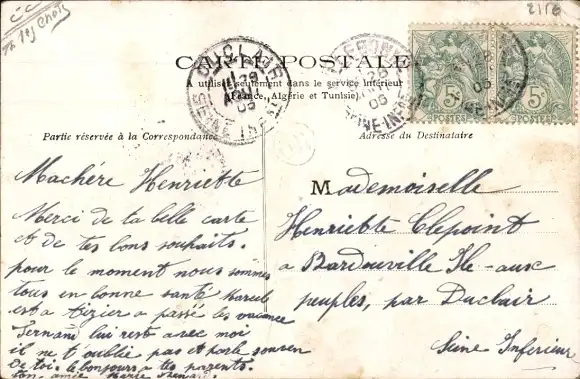 2116
CARTE POSTALE
A utiliser seulement dans le service intérieur
(France, Algérie et Tunisie)
DUCLAIR
29
AOUT
05
SEINE-INFRE
28
05
SEINE-INFRE
5c
POSTES
5c
POSTES
Partie réservée à la Correspondance
Adresse du Destinataire
Machére Henriette
Merci de ta belle carte
et de tes bons souhaits.
pour le moment nous sommes
tous en bonne santé Marcele
est a a passé les vacance
Fernand lui rest avec moi
il ne t oublie pas et parle souven
De toi. le bonjours a tes parents.
Ton amie Marie
Mademoiselle
Henriette Clepoint
a Bardouville Ile-aux
peuples, par Duclair
Seine Inferieur